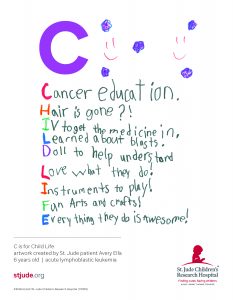 C
Cancer education.
Hair is gone?!
IV to get the medicine in,
Learned about blasts.
Doll to help understand
Love what they do!
Instruments to play!
Fun Arts and crafts!
Everything they do is awesome!
C is for Child Life
artwork created by St. Jude patient Avery Ella
8 years old | acute lymphoblastic leukemia
stjude.org
St. Jude Children's
Research Hospital
Finding cures. Saving children.